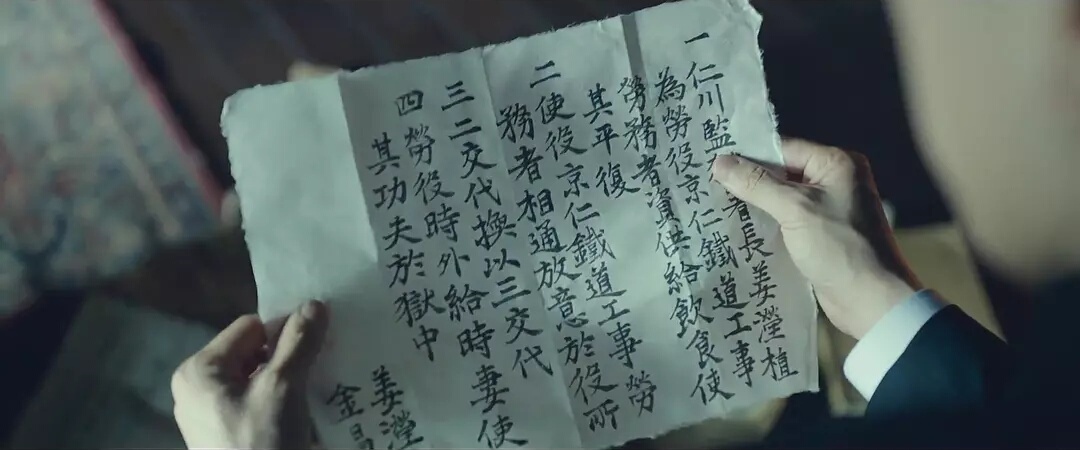 一 仁川監 者長姜瀅植
為勞役京仁鐵道工事
勞務者資供給飲食使
其平復
二 使役京仁鐵道工事勞
務者相通放意於役所
三 二交代換以三交代
四 勞役時外給時妻使
其功夫於獄中
姜瀅
金昌